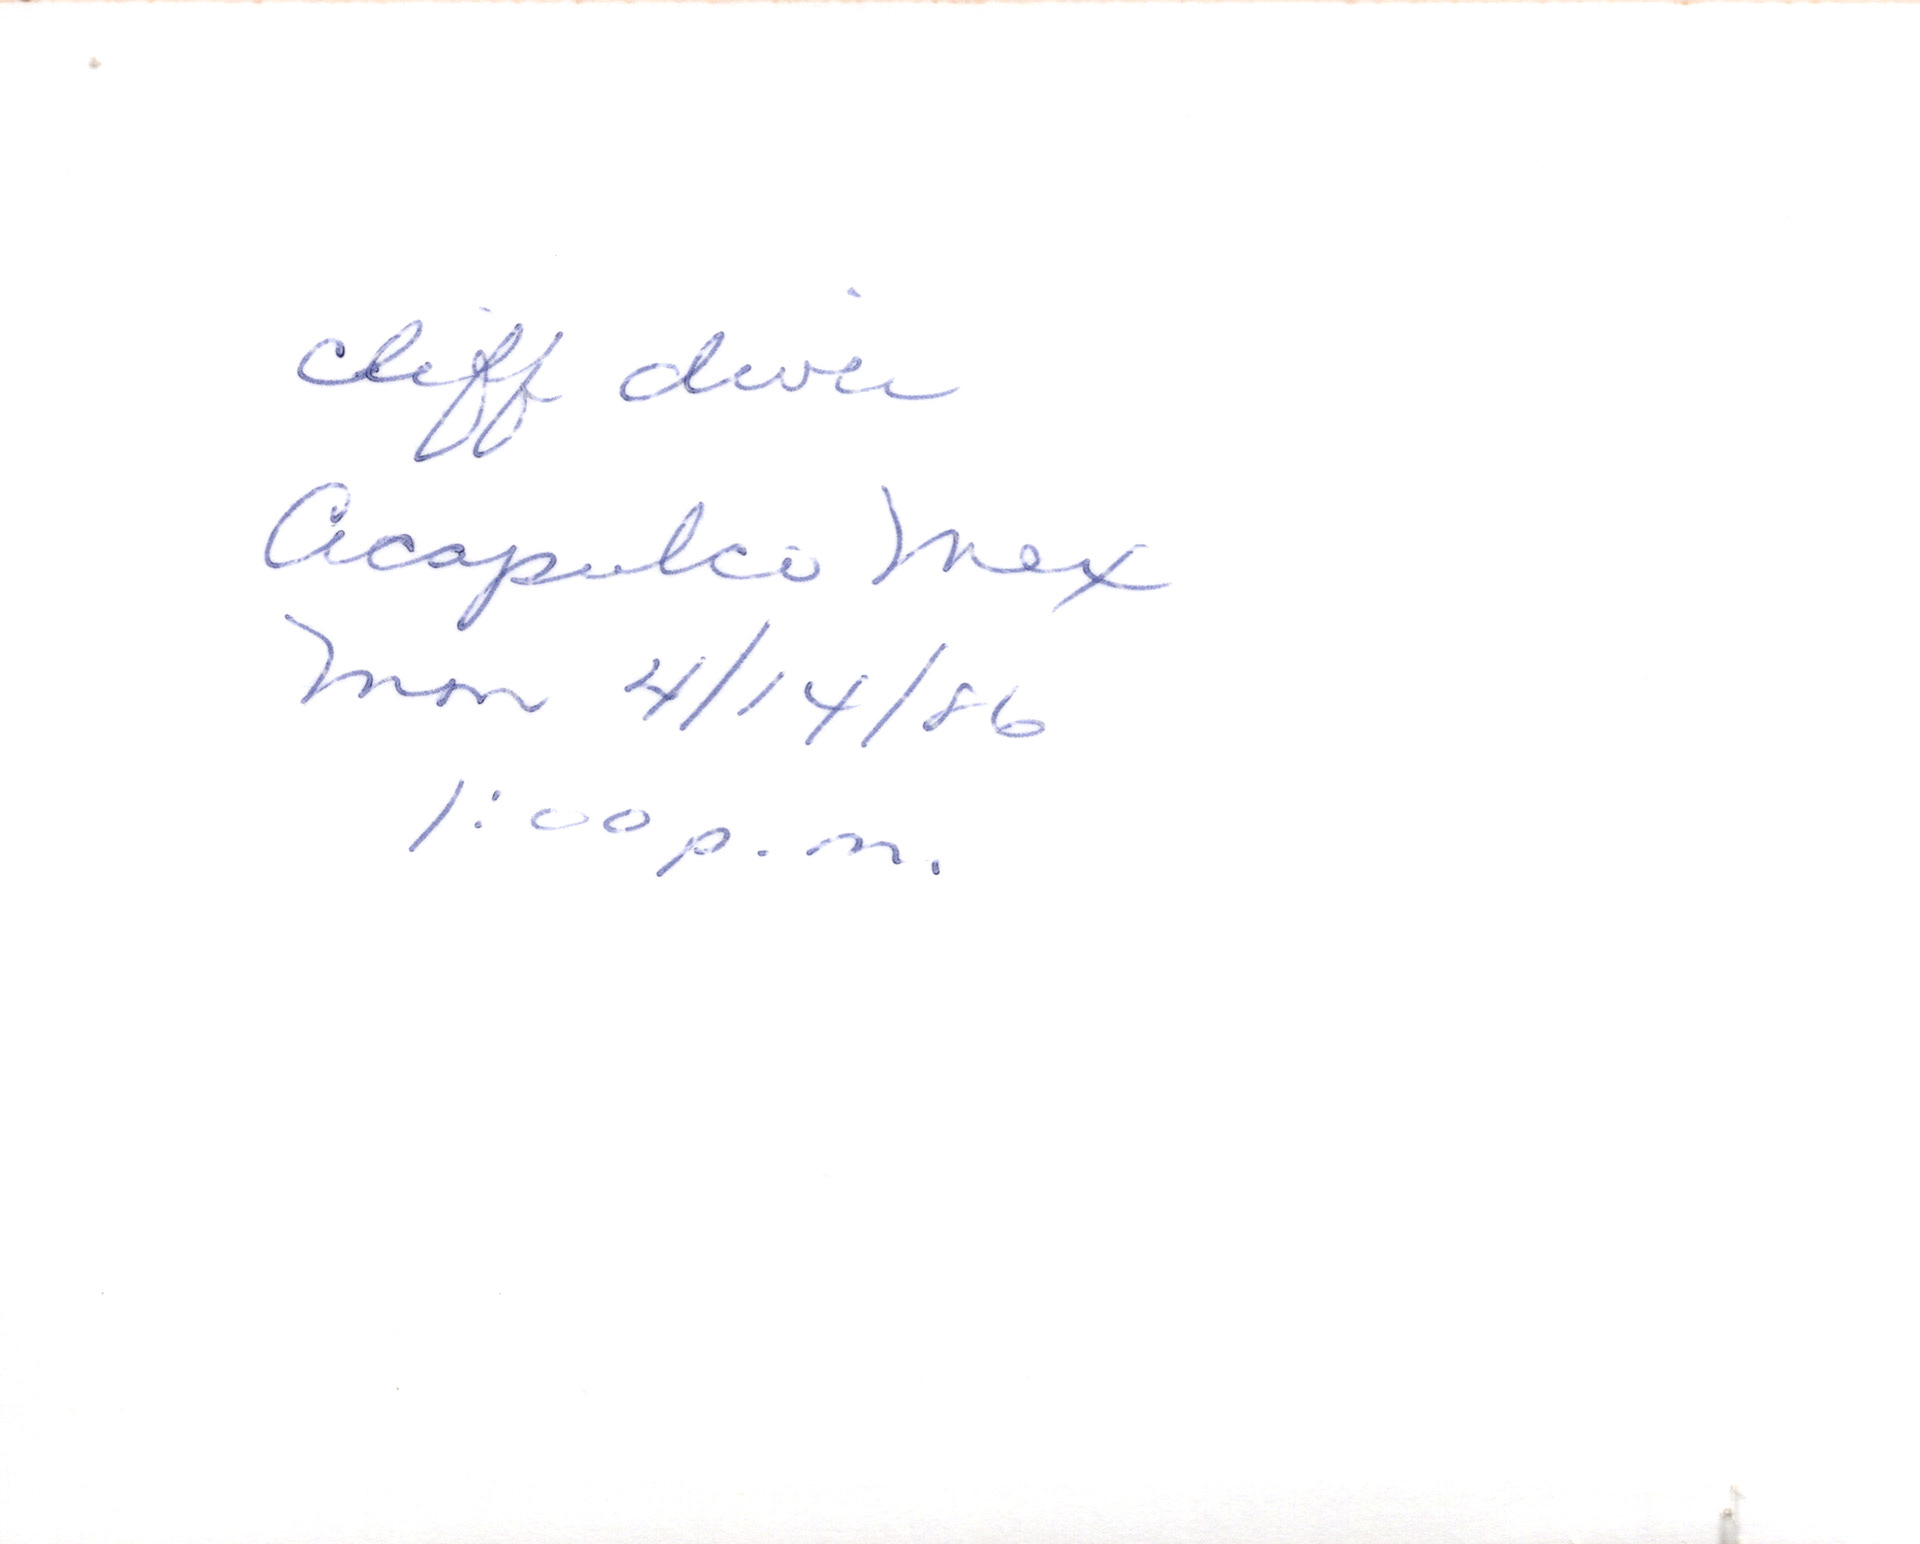 cliff diver
Acapulco Mex
Mon 4/14/86
1:00 p.m.